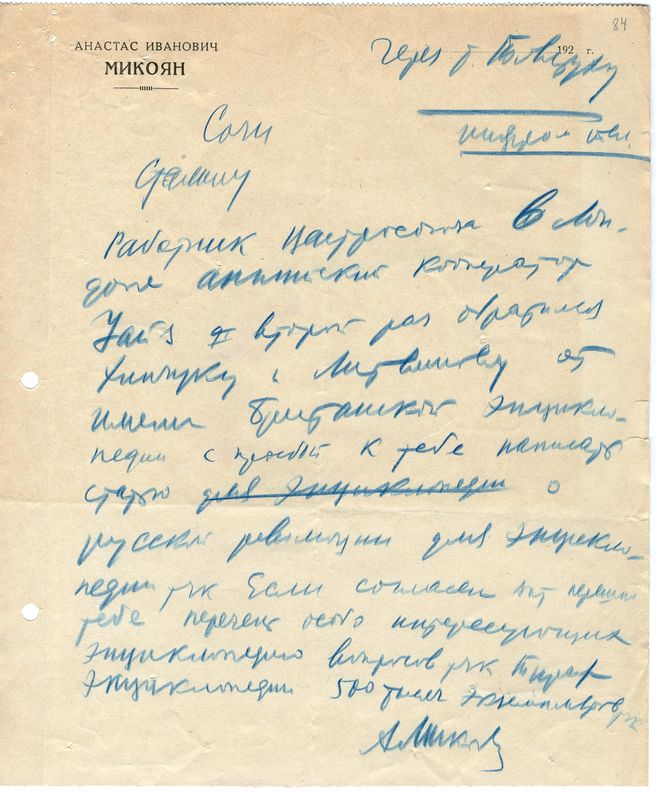 84
АНАСТАС ИВАНОВИЧ
МИКОЯН
192 г.
Через т. Товстуху
шифром
Сочи
Сталину
Работник Центросоюза в Лон-
доне английский кооператор
Уайз второй раз обратился
Хинчуку и Литвинову от
имени Британской Энцикло-
педии с просьбой к тебе написать
статью для Энциклопедии о
русской революции для Энцикло-
педии тчк Если согласен перешлю
тебе перечень особо интересующих
Энциклопедию вопросов тчк Тираж
Энциклопедии 500 тысяч экземпляров тчк
А Микоян